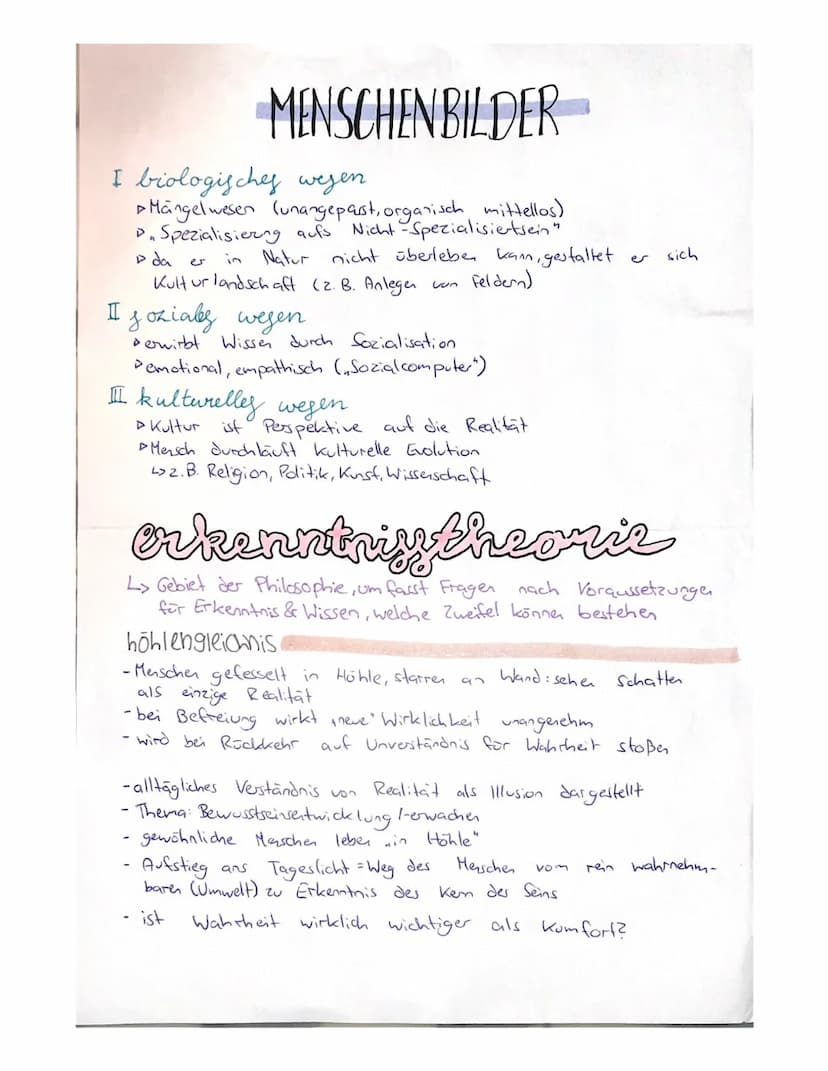 MENSCHENBILDER
I biologisches wesen
▹ Mängelwesen (unangepasst, organisch mittellos)
▹ „Spezialisierung aufs Nicht-Spezialisiertsein"
▹ da er in Natur nicht überleben kann, gestaltet er sich
Kulturlandschaft (z.B. Anlegen von Feldern)
II soziales wesen
▹ erwirbt Wissen durch Sozialisation
▹ emotional, empathisch („Sozialcomputer")
III kulturelles wesen
▹ Kultur ist Perspektive auf die Realität
▹ Mensch durchläuft kulturelle Evolution
↳ z.B. Religion, Politik, Kunst, Wissenschaft
erkenntnisstheorie
↳ Gebiet der Philosophie, umfasst Fragen nach Voraussetzungen
für Erkenntnis & Wissen, welche Zweifel können bestehen
höhlengleichnis
- Menschen gefesselt in Höhle, starren an Wand: sehen Schatten
als einzige Realität
- bei Befreiung wirkt „neue" Wirklichkeit unangenehm
- wird bei Rückkehr auf Unverständnis für Wahrheit stoßen
- alltägliches Verständnis von Realität als Illusion dargestellt
- Thema: Bewusstseinsentwicklung /-erwachen
- gewöhnliche Menschen leben „in Höhle"
- Aufstieg ans Tageslicht = Weg des Menschen vom rein wahrnehm-
baren (Umwelt) zu Erkenntnis des Kern des Seins
- ist Wahrheit wirklich wichtiger als Komfort?